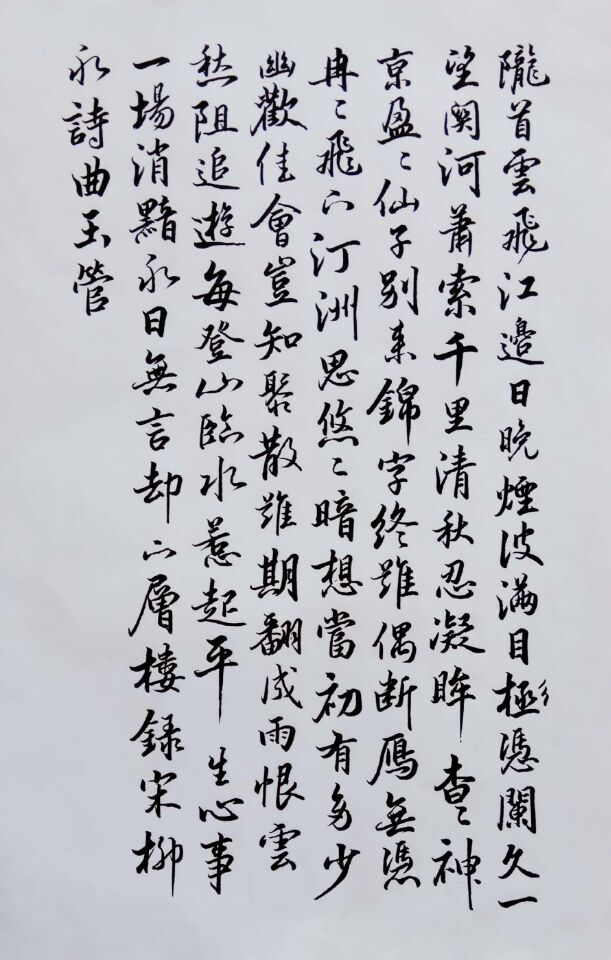 隴首雲飛江邊日晚煙波滿目極慿闌久一
望関河蕭索千里清秋忍凝眸杳〻神
京盈〻仙子別来錦字終難偶断鴈無慿
冉〻飛下汀洲思悠〻暗想當初有多少
幽歡佳會豈知聚散難期翻成雨恨雲
愁阻追遊每登山臨水惹起平生心事
一場消黯永日無言却下層樓録宋柳
永詩曲玉管